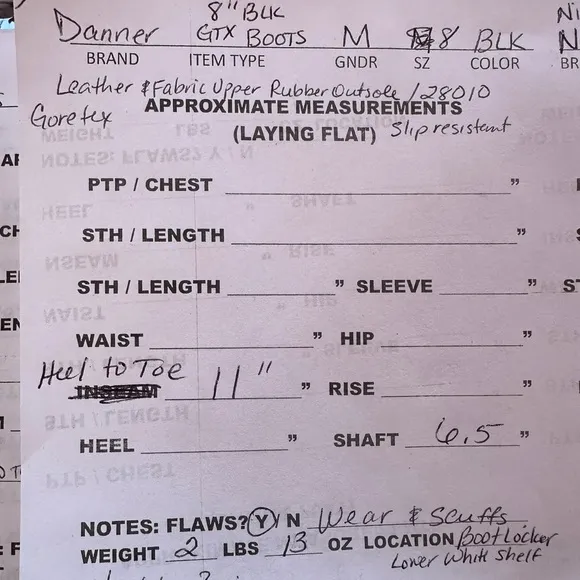 8" BLK
Danner GTX BOOTS M 8 BLK
BRAND ITEM TYPE GNDR SZ COLOR
Leather & Fabric Upper Rubber Outsole / 28010
Goretex APPROXIMATE MEASUREMENTS
(LAYING FLAT) Slip resistant
PTP / CHEST "
STH / LENGTH "
STH / LENGTH " SLEEVE "
WAIST " HIP "
Heel to Toe
INSEAM 11" " RISE "
HEEL " SHAFT 6.5 "
NOTES: FLAWS? Y / N Wear & Scuffs
WEIGHT 2 LBS 13 OZ LOCATION Boot Locker
Lower White Shelf